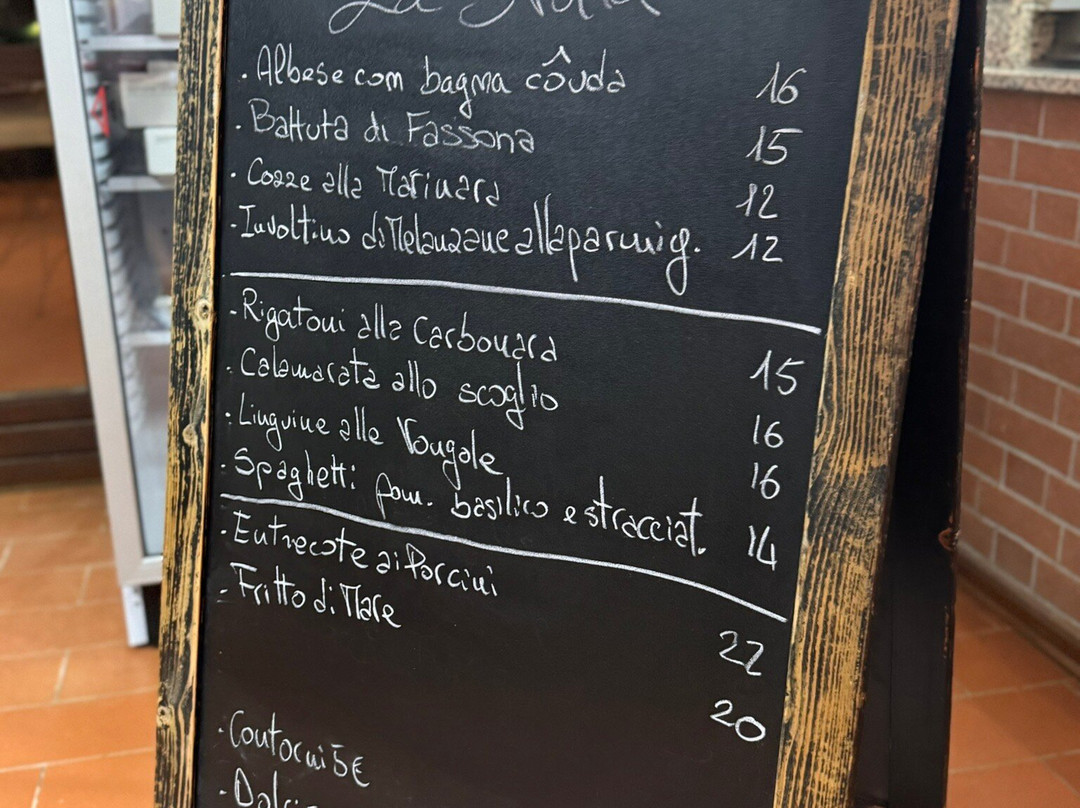 · Albese con bagna côuda 16
· Battuta di Fassona 15
· Cozze alla Marinara 12
· Involtino di Melanzane alla parmig. 12
· Rigatoni alla Carbonara 15
· Calamarata allo scoglio 16
· Linguine alle Vongole 16
· Spaghetti pom. basilico e stracciat. 14
· Entrecote ai Porcini 22
· Fritto di Mare 20
· Contorni 5€